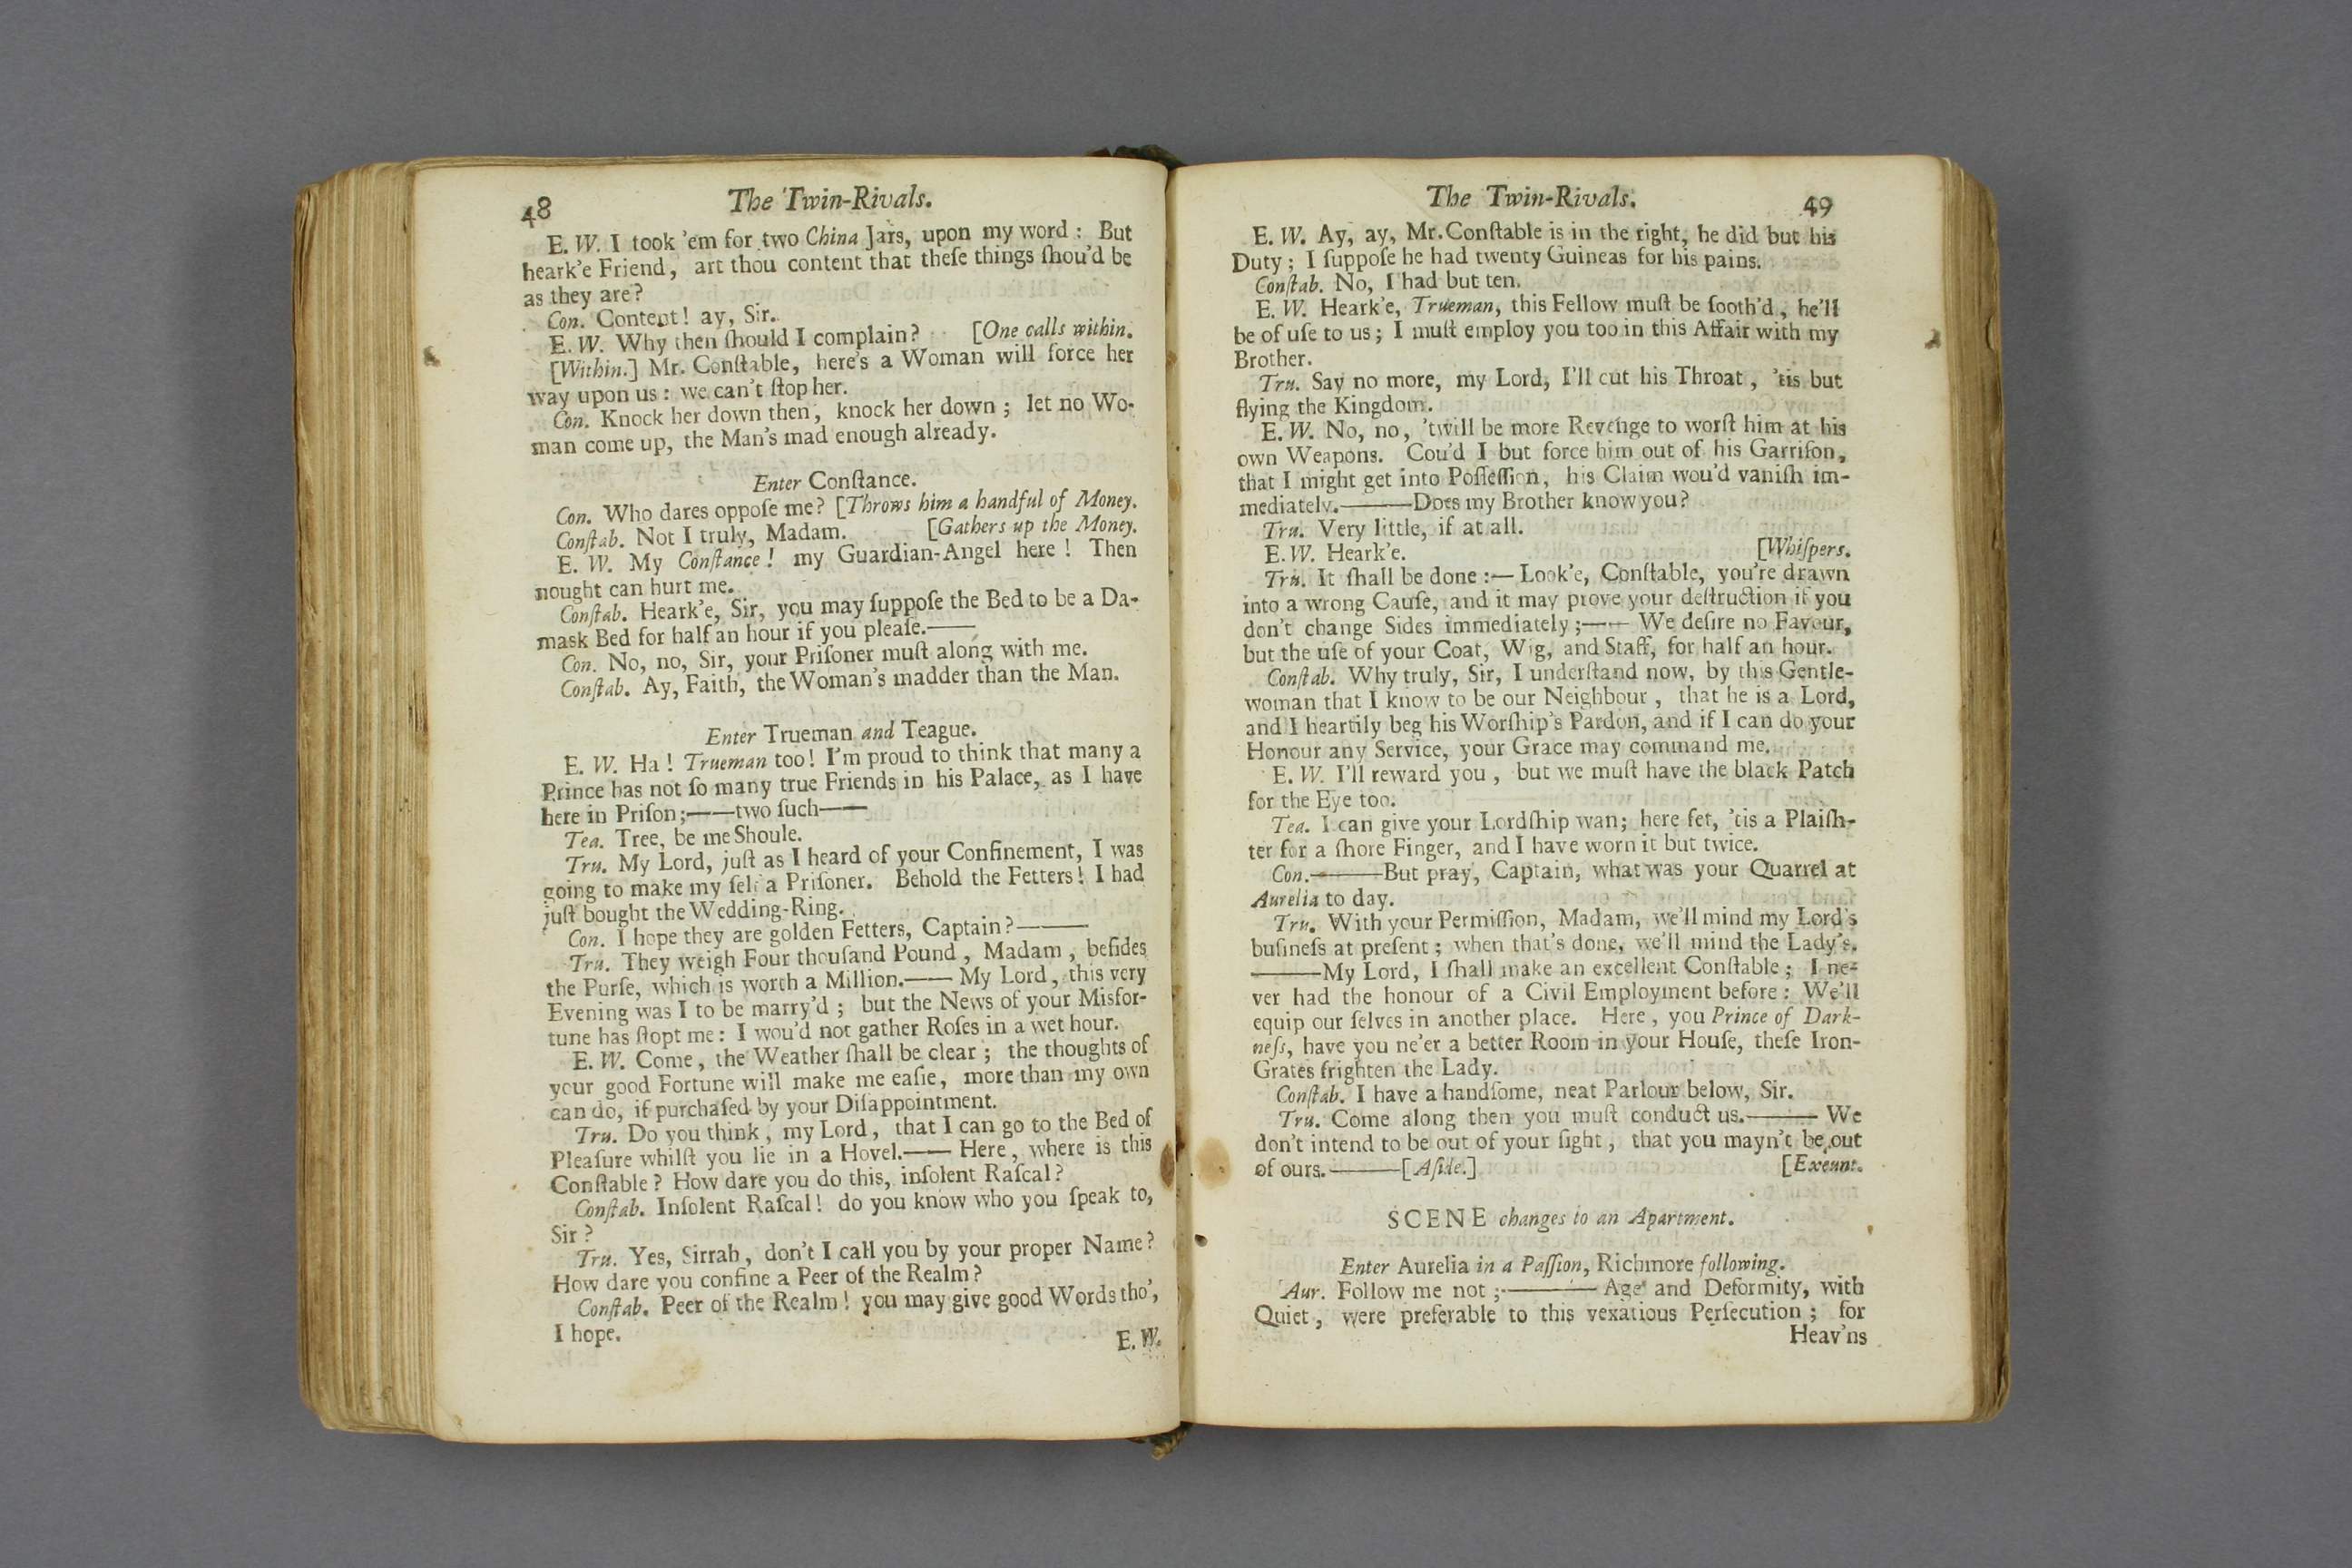 48
The Twin-Rivals.
E. W. I took 'em for two China Jars, upon my word : But
heark'e Friend, art thou content that theſe things ſhou'd be
as they are?
Con. Content! ay, Sir.
E. W. Why then ſhould I complain? [One calls within.
[Within.] Mr. Conſtable, here's a Woman will force her
way upon us : we can't ſtop her.
Con. Knock her down then, knock her down ; let no Wo-
man come up, the Man's mad enough already.
Enter Conſtance.
Con. Who dares oppoſe me? [Throws him a handful of Money.
Conſtab. Not I truly, Madam. [Gathers up the Money.
E. W. My Conſtance! my Guardian-Angel here! Then
nought can hurt me.
Conſtab. Heark'e, Sir, you may ſuppoſe the Bed to be a Da-
mask Bed for half an hour if you pleaſe.——
Con. No, no, Sir, your Priſoner muſt along with me.
Conſtab. Ay, Faith, the Woman's madder than the Man.
Enter Trueman and Teague.
E. W. Ha! Trueman too! I'm proud to think that many a
Prince has not ſo many true Friends in his Palace, as I have
here in Priſon;——two ſuch——
Tea. Tree, be me Shoule.
Tru. My Lord, juſt as I heard of your Confinement, I was
going to make my ſelf a Priſoner. Behold the Fetters! I had
juſt bought the Wedding-Ring.
Con. I hope they are golden Fetters, Captain?———
Tru. They weigh Four thouſand Pound, Madam, beſides
the Purſe, which is worth a Million.—— My Lord, this very
Evening was I to be marry'd ; but the News of your Misfor-
tune has ſtopt me : I wou'd not gather Roſes in a wet hour.
E. W. Come, the Weather ſhall be clear ; the thoughts of
your good Fortune will make me eaſie, more than my own
can do, if purchaſed by your Diſappointment.
Tru. Do you think, my Lord, that I can go to the Bed of
Pleaſure whilſt you lie in a Hovel.—— Here, where is this
Conſtable? How dare you do this, inſolent Raſcal?
Conſtab. Inſolent Raſcal! do you know who you ſpeak to,
Sir?
Tru. Yes, Sirrah, don't I call you by your proper Name?
How dare you confine a Peer of the Realm?
Conſtab. Peer of the Realm! you may give good Words tho',
I hope.
E. W.
The Twin-Rivals.
49
E. W. Ay, ay, Mr. Conſtable is in the right, he did but his
Duty ; I ſuppoſe he had twenty Guineas for his pains.
Conſtab. No, I had but ten.
E. W. Heark'e, Trueman, this Fellow muſt be ſooth'd, he'll
be of uſe to us ; I muſt employ you too in this Affair with my
Brother.
Tru. Say no more, my Lord, I'll cut his Throat, 'tis but
flying the Kingdom.
E. W. No, no, 'twill be more Revenge to worſt him at his
own Weapons. Cou'd I but force him out of his Garriſon,
that I might get into Poſſeſſion, his Claim wou'd vaniſh im-
mediately.———Does my Brother know you?
Tru. Very little, if at all.
E. W. Heark'e. [Whiſpers.
Tru. It ſhall be done :— Look'e, Conſtable, you're drawn
into a wrong Cauſe, and it may prove your deſtruction if you
don't change Sides immediately ;—— We deſire no Favour,
but the uſe of your Coat, Wig, and Staff, for half an hour.
Conſtab. Why truly, Sir, I underſtand now, by this Gentle-
woman that I know to be our Neighbour, that he is a Lord,
and I heartily beg his Worſhip's Pardon, and if I can do your
Honour any Service, your Grace may command me.
E. W. I'll reward you, but we muſt have the black Patch
for the Eye too.
Tea. I can give your Lordſhip wan; here fet, 'tis a Plaiſh-
ter for a ſhore Finger, and I have worn it but twice.
Con.———But pray, Captain, what was your Quarrel at
Aurelia to day.
Tru. With your Permiſſion, Madam, we'll mind my Lord's
buſineſs at preſent ; when that's done, we'll mind the Lady's.
———My Lord, I ſhall make an excellent Conſtable ; I ne-
ver had the honour of a Civil Employment before : We'll
equip our ſelves in another place. Here, you Prince of Dark-
neſs, have you ne'er a better Room in your Houſe, theſe Iron-
Grates frighten the Lady.
Conſtab. I have a handſome, neat Parlour below, Sir.
Tru. Come along then you muſt conduct us.——— We
don't intend to be out of your ſight, that you mayn't be out
of ours.———[Aſide.] [Exeunt.
SCENE changes to an Apartment.
Enter Aurelia in a Paſſion, Richmore following.
Aur. Follow me not ;———— Age and Deformity, with
Quiet, were preferable to this vexatious Perſecution ; for
Heav'ns